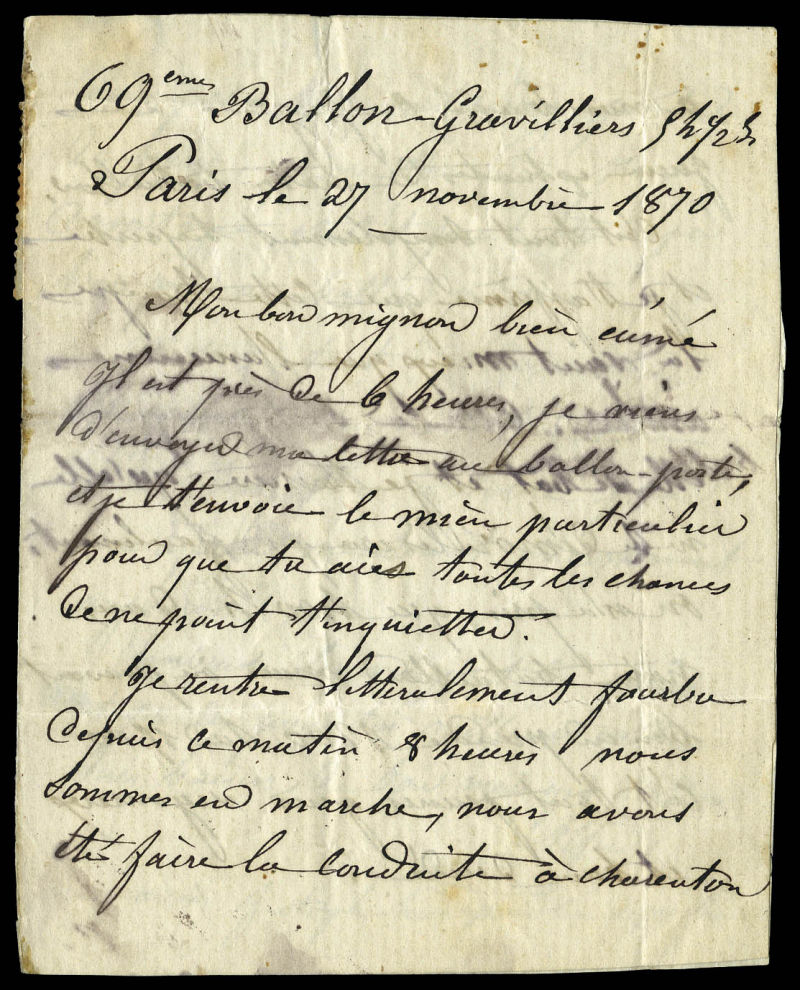 69ème Ballon - Gravilliers 5h 1/2 s
Paris le 27 novembre 1870
Mon bon mignon bien aimé
Il est près de 6 heures, je viens
d'envoyer ma lettre au ballon-poste,
et je t'envoie le mien particulier
pour que tu aies toutes les chances
de ne point t'inquietter.
Je rentre litteralement fourbu
depuis ce matin 8 heures nous
sommes en marche, nous avons
été faire la conduite à charenton